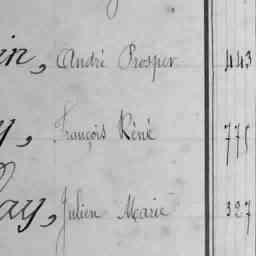 in, André Prosper 443
y, François Réné 775
ay, Julien Marie 327